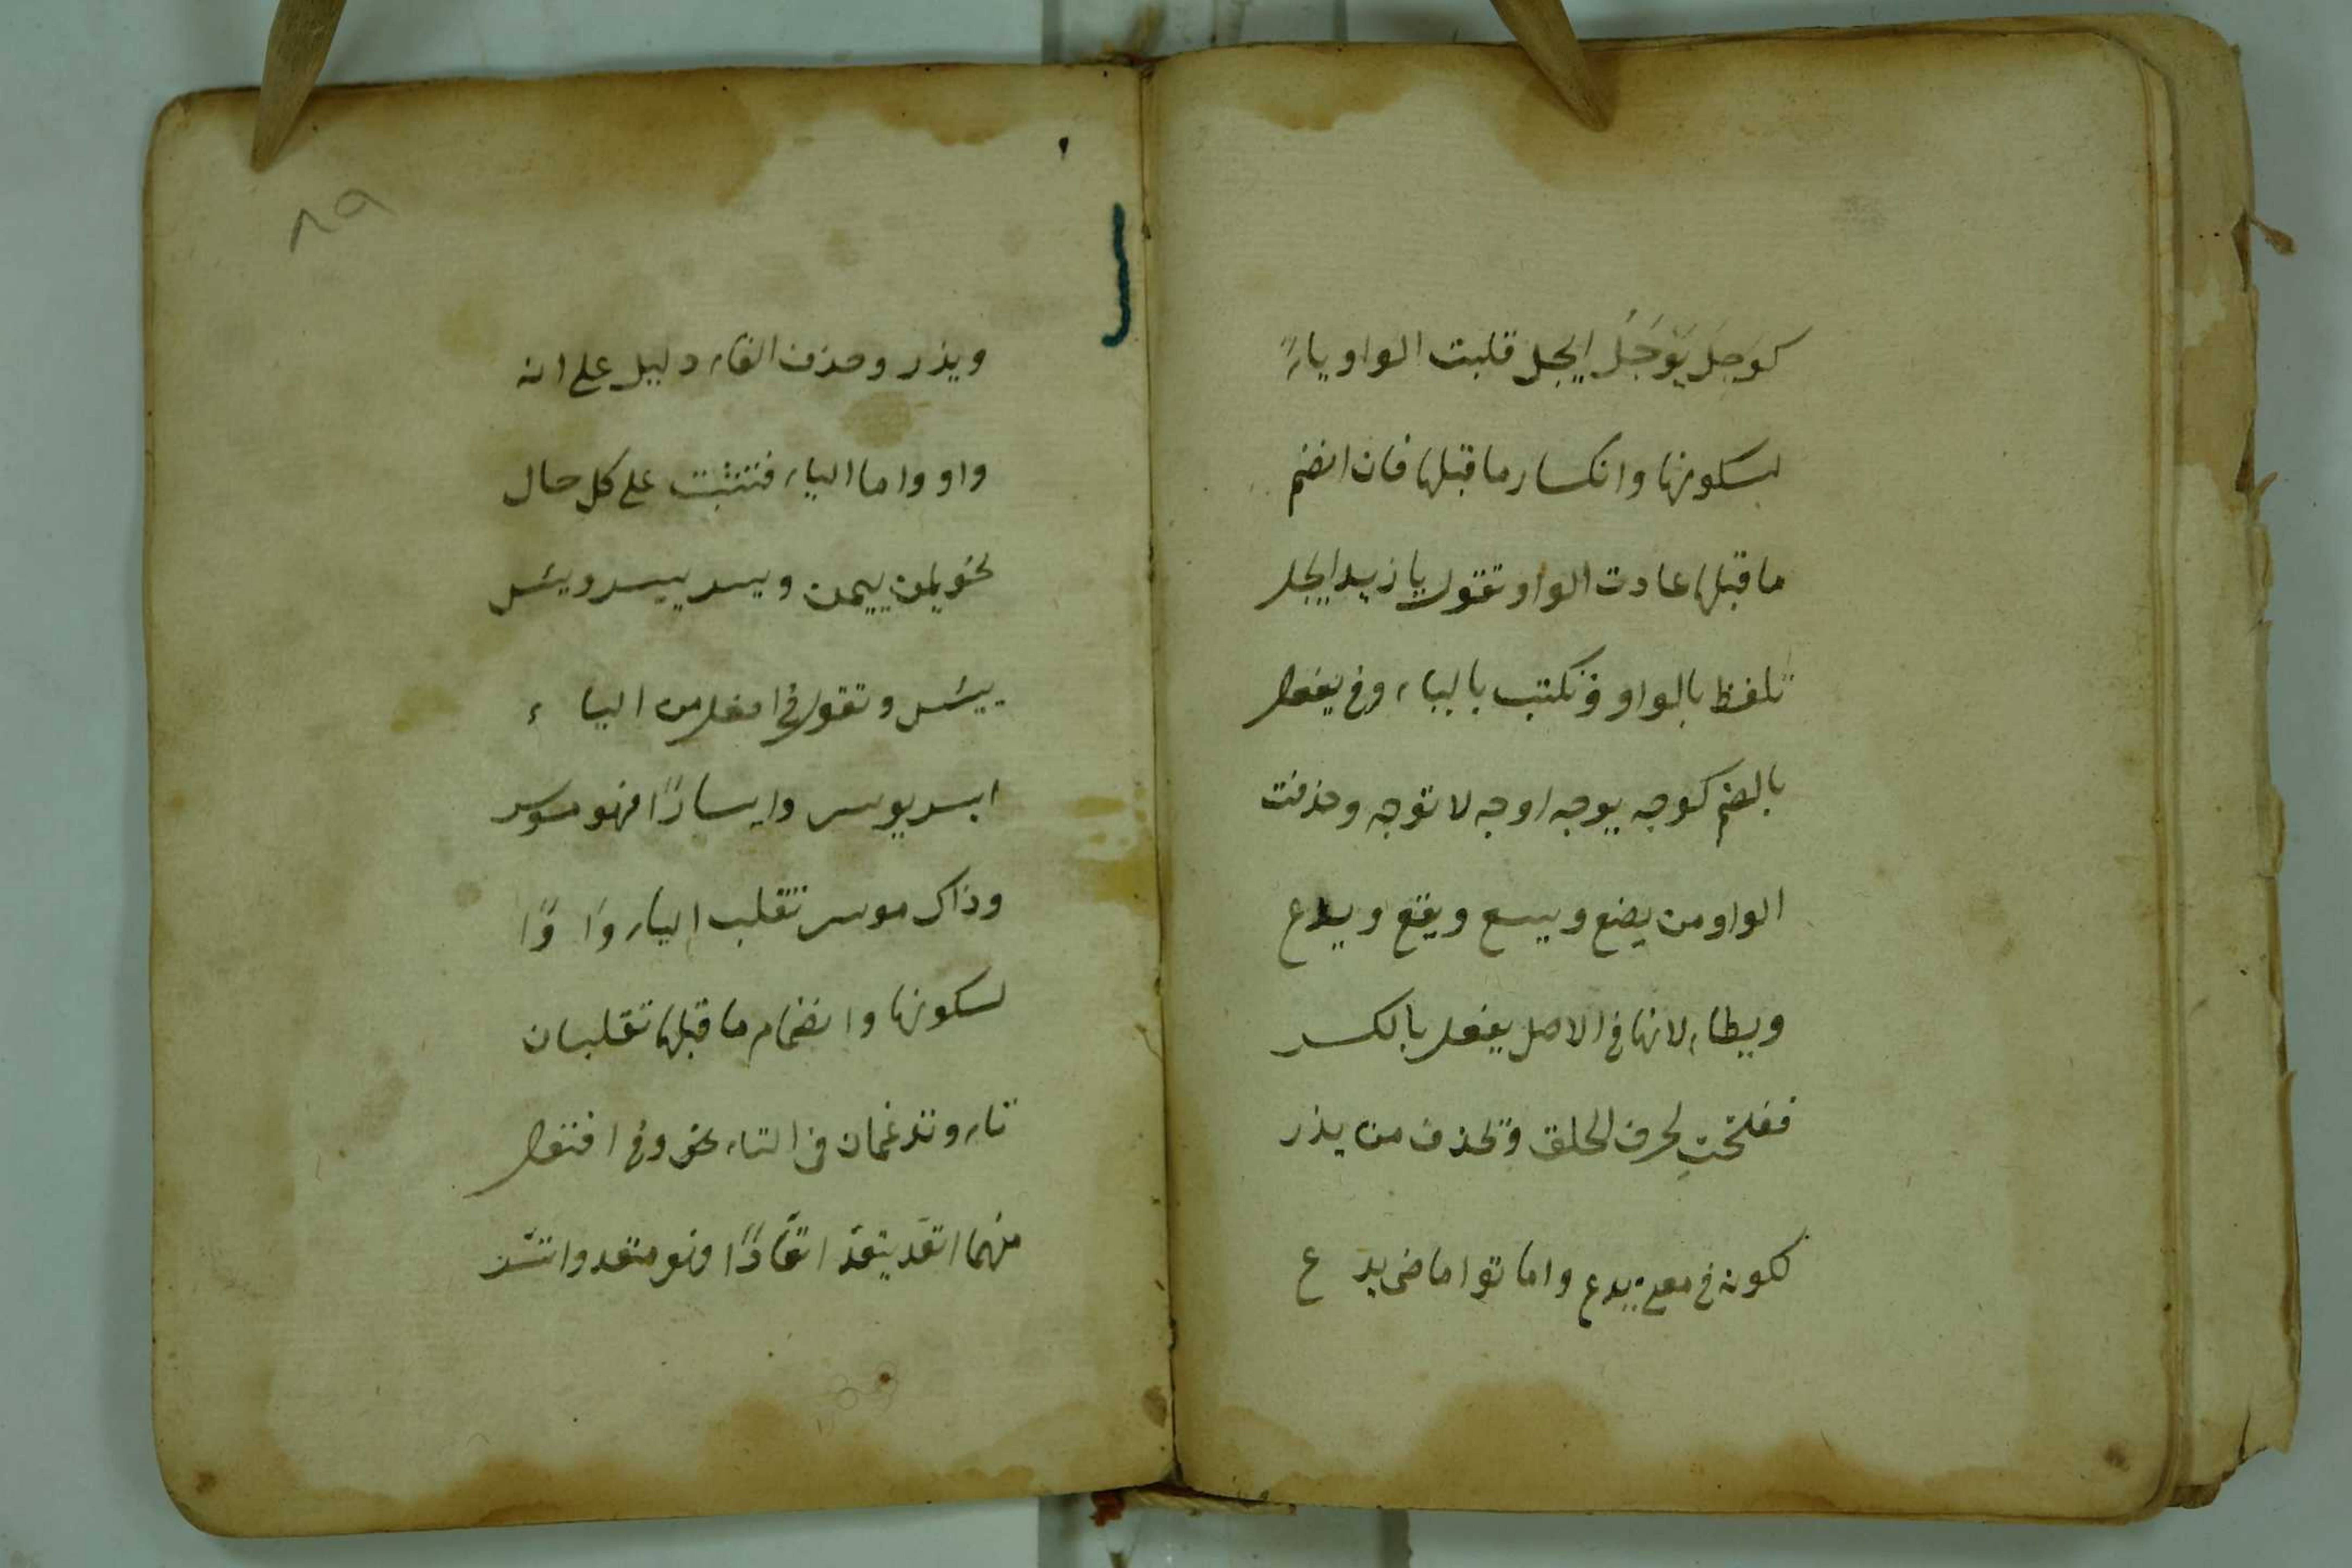 كوَجِلَ يَوْجَلُ ايجل قلبت الواو ياءً
لسكونها وانكسار ما قبلها فان انضم
ما قبلها عادت الواو تقول يا زيد ايجل
تلفظ بالواو وتكتب بالياء وفي يفعل
بالضم كوجه يوجه اوجه لا توجه وحذفت
الواو من يضع ويسع ويقع ويدع
ويطاء لانها في الاصل يفعل بالكسر
ففتحت لحرف الحلق وتحذف من يذر
لكونه في معنى يدع واماتوا ماضى يدع
٨٩
ويذر وحذف الفاء دليل على انه
واو واما الياء فتثبت على كل حال
نحو يمن ييمن ويسر ييسر ويئس
ييئس وتقول في افعل من الياء
ايسر يوسر وايسارًا فهو موسر
وذاك موسر تقلب الياء واوًا
لسكونها وانضمام ما قبلها تقلبان
تاء وتدغمان في التاء نحو وفي افتعل
منهما اتقد يتقد اتقادًا وهو متقد واتسر